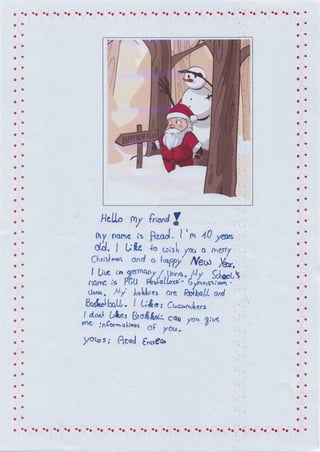 HAPPY NEW YEAR
Hello my friend!
My name is Azad. I'm 10 years
old. I Like to wish you a merry
Christmas and a happy New Year.
I Live in germany/Unna. My School's
name is PGU Pestallozzi-Gymnasium-
Unna. My hobbies are football and
Basketball. I Like: Cucumbers
I dont Likes Brokkoli can you give
me informations of you.
yours; Azad